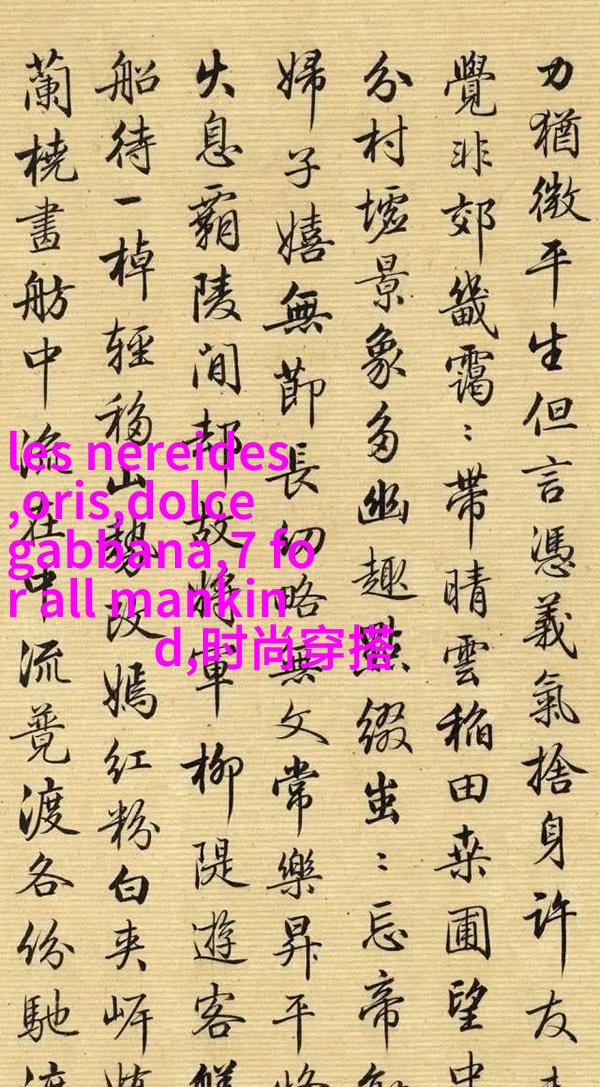 力猶微平生但言憑義氣捨身許友
覺非郊畿靄:帶晴雲稻田桒圃望中
分村墟景象多幽趣點綴出:忘帝
婦子嬉無節長幼略無文常樂昇平
息霸陵间却故將軍柳隄遊客
船待一棹輕移山勢改嫣紅粉白夹岍
蘭橈畫舫中流在中流競渡各份馳
les nereides
,oris,dolce
gabbana,7 fo
r all mankin
d,时尚穿搭